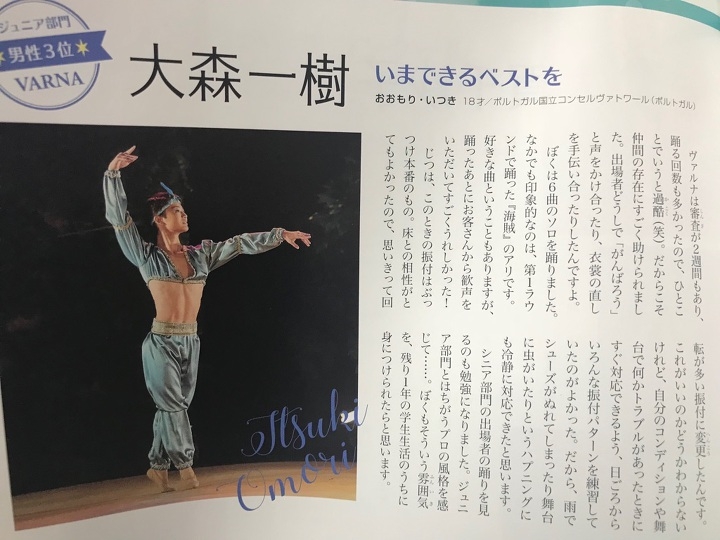 ジュニア部門
男性3位
VARNA
大森一樹
いまできるベストを
おおもり・いつき 18才/ポルトガル国立コンセルヴァトワール(ポルトガル)
ヴァルナは審査が2週間もあり、
踊る回数も多かったので、ひとこ
とでいうと過酷(笑)。だからこそ
仲間の存在にすごく助けられまし
た。出場者どうしで「がんばろう」
と声をかけ合ったり、衣裳の直し
を手伝い合ったりしたんですよ。
ぼくは6曲のソロを踊りました。
なかでも印象的なのは、第1ラウ
ンドで踊った『海賊』のアリです。
好きな曲ということもありますが、
踊ったあとにお客さんから歓声を
いただいてすごくうれしかった!
じつは、このときの振付はぶっ
つけ本番のもの。床との相性がと
てもよかったので、思いきって回
転が多い振付に変更したんです。
これがいいのかどうかわからない
けれど、自分のコンディションや舞
台で何かトラブルがあったときに
すぐ対応できるよう、日ごろから
いろんな振付パターンを練習して
いたのがよかった。だから、雨で
シューズがぬれてしまったり舞台
に虫がいたりというハプニングに
も冷静に対応できたと思います。
シニア部門の出場者の踊りを見
るのも勉強になりました。ジュニ
ア部門とはちがうプロの風格を感
じて……。ぼくもそういう雰囲気
を、残り1年の学生生活のうちに
身につけられたらと思います。
Itsuki
Omori